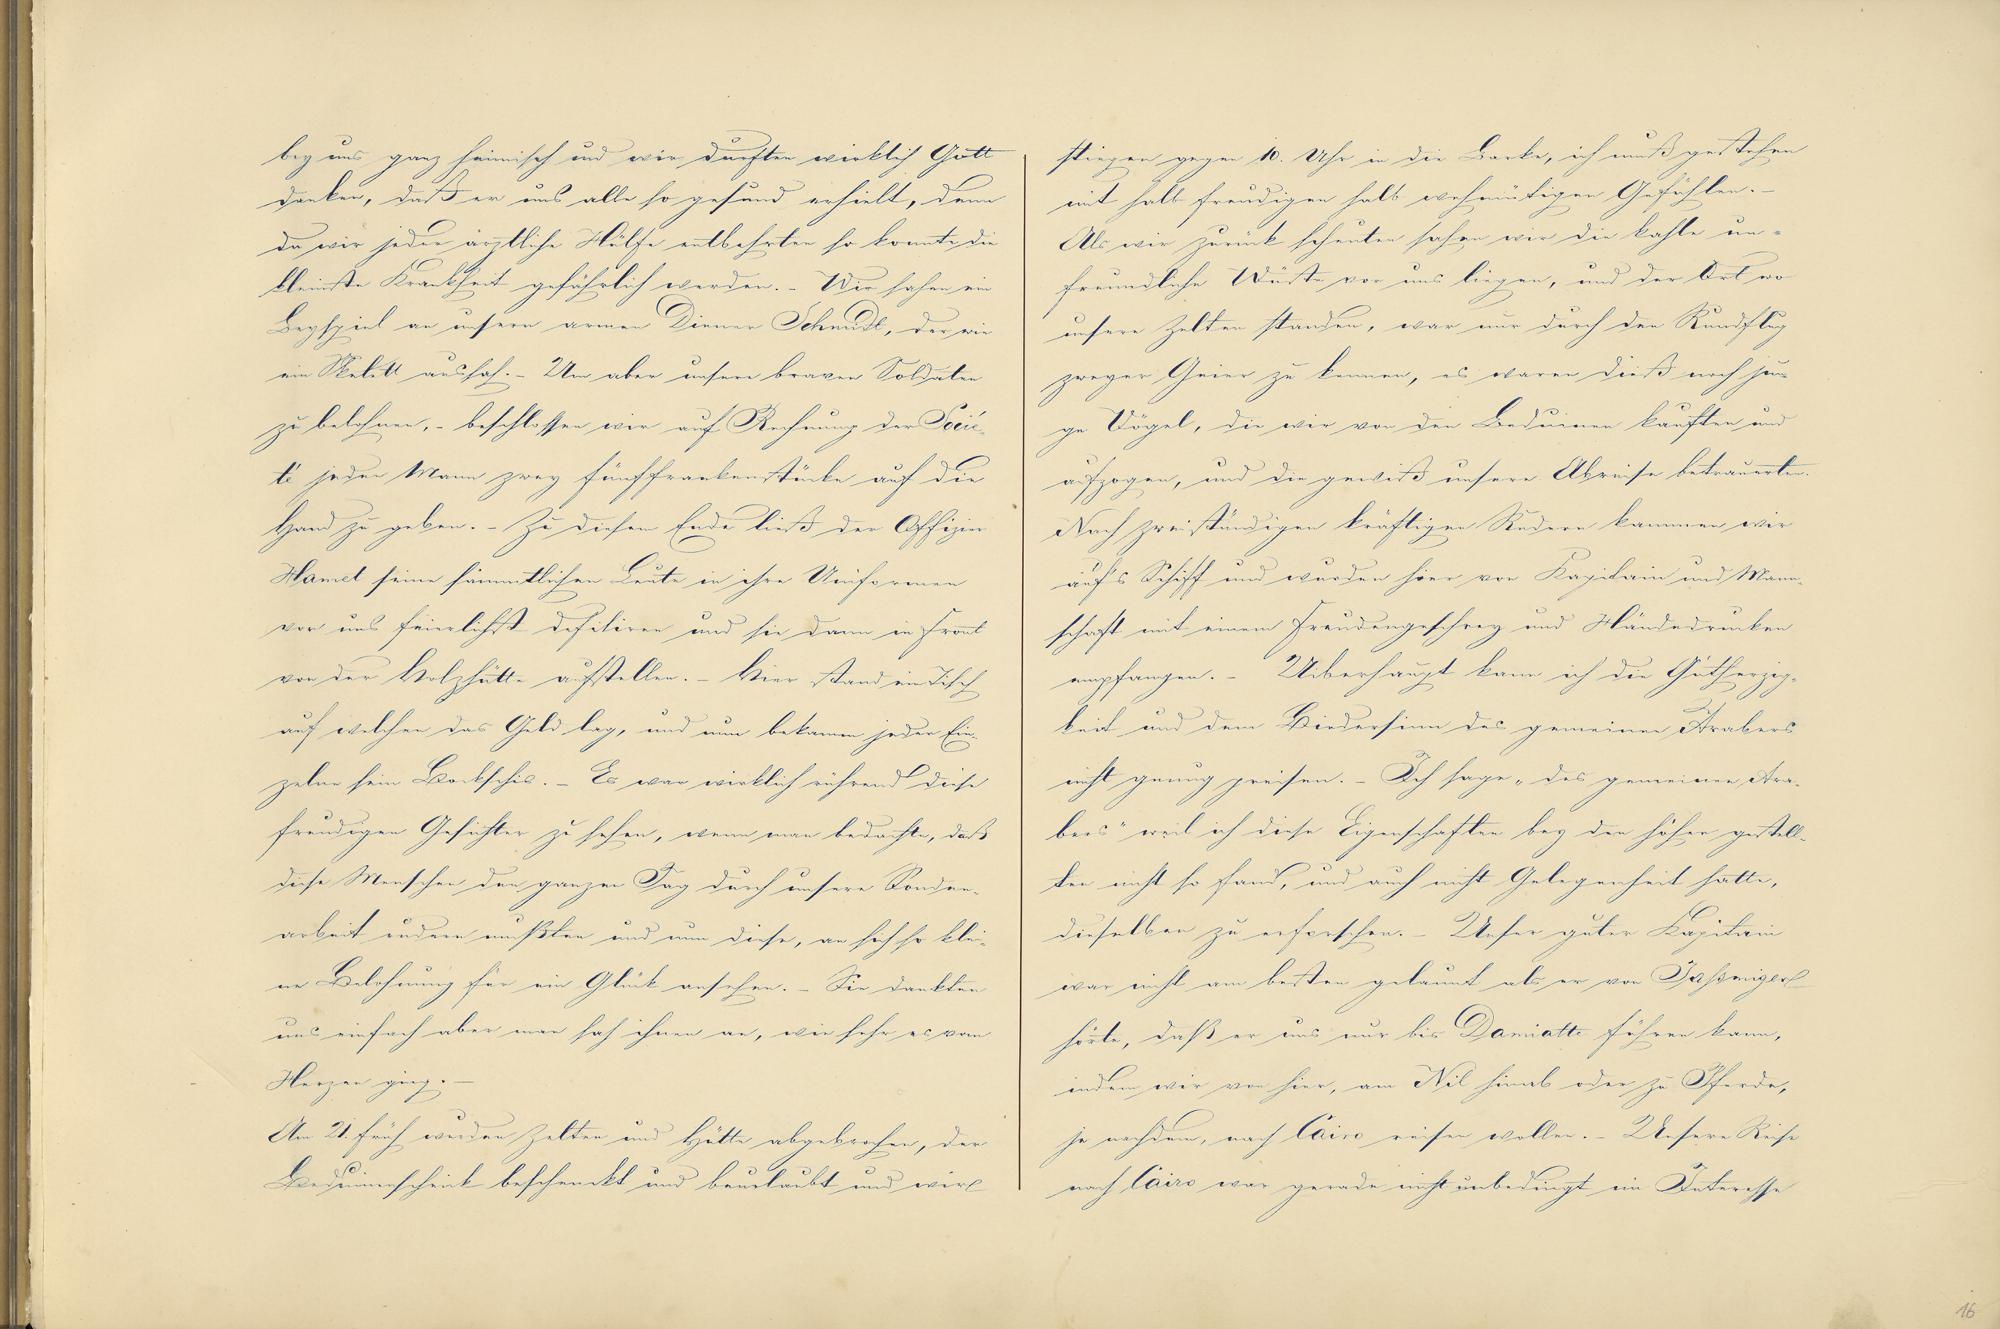 bey uns ganz heimisch und wir durften wirklich Gott
danken, daß er uns alle so gesund erhielt, denn
da wir jeder ärztliche Hülfe entbehrten so konnte die
kleinste Krankheit gefährlich werden. – Wir sahen ein
Beyspiel an unsern armen Diener Schmidt, der wie
ein Skelett aussah. – Um aber unsere braven Soldaten
zu belohnen, – beschlossen wir auf Rechnung der Socié-
té jeden Mann zwey Fünffrankenstücke auf die
Hand zu geben. – Zu diesem Ende ließ der Offizier
Hamet seine sämmtlichen Leute in ihre Uniformen
vor uns feierlichst defiliren und sie dann in Front
von der Holzhütte aufstellen. – Hier stand ein Tisch
auf welchen das Geld lag, und nun bekamm jeder Ein-
zelne sein Backschis. – Es war wirklich rührend diese
freudigen Gesichter zu sehen, wenn man bedachte, daß
diese Menschen den ganzen Tag durch unsere Sonden-
arbeit rudern mußten und nun diese, an sich so klei-
ne Belohnung für ein Glück ansehen. – Sie dankten
uns einfach aber man sah ihnen an, wie sehr es vom
Herzen ging. –
Am 21. früh wurden Zelten und Hütte abgebrochen, der
Beduinenscheick beschenckt und beurlaubt und wir
stiegen gegen 10. Uhr in die Barke, ich muß gestehen
mit halb freudigen halb wehmütigen Gefühlen. –
Als wir zurück schauten sahen wir die kahle un-
freundliche Wüste vor uns liegen, und der Ort wo
unsere Zelten standen, war nur durch den Rundflug
zweyer Geier zu kennen, es waren dieß noch jun-
ge Vögel, die wir von den Beduinen kauften und
aufzogen, und die gewiß unsere Abreise betrauerten.
Nach zweistündigen kräftigen Rudern kammen wir
auf's Schiff und wurden hier von Kapitain und Mann-
schaft mit einem Freudengeschrey und Händedrucken
empfangen. – Ueberhaupt kann ich die Gutherzig-
keit und dem Biedersinn des gemeinen Arabers
nicht genug preisen. – Ich sage „des gemeinen Ara-
bers" weil ich diese Eigenschaften bey den höher gestell-
ten nicht so fand, und auch nicht Gelegenheit hatte,
dieselben zu erforschen. – Unser guter Kapitain
war nicht am besten gelaunt als er von
hörte, daß er uns nur bis Damiatte führen kann,
indem wir von hier, am Nil hinab oder zu Pferde,
je nachdem, nach Cairo reisen wollen. – Unsere Reise
nach Cairo war gerade nicht unbedingt im Interesse
16